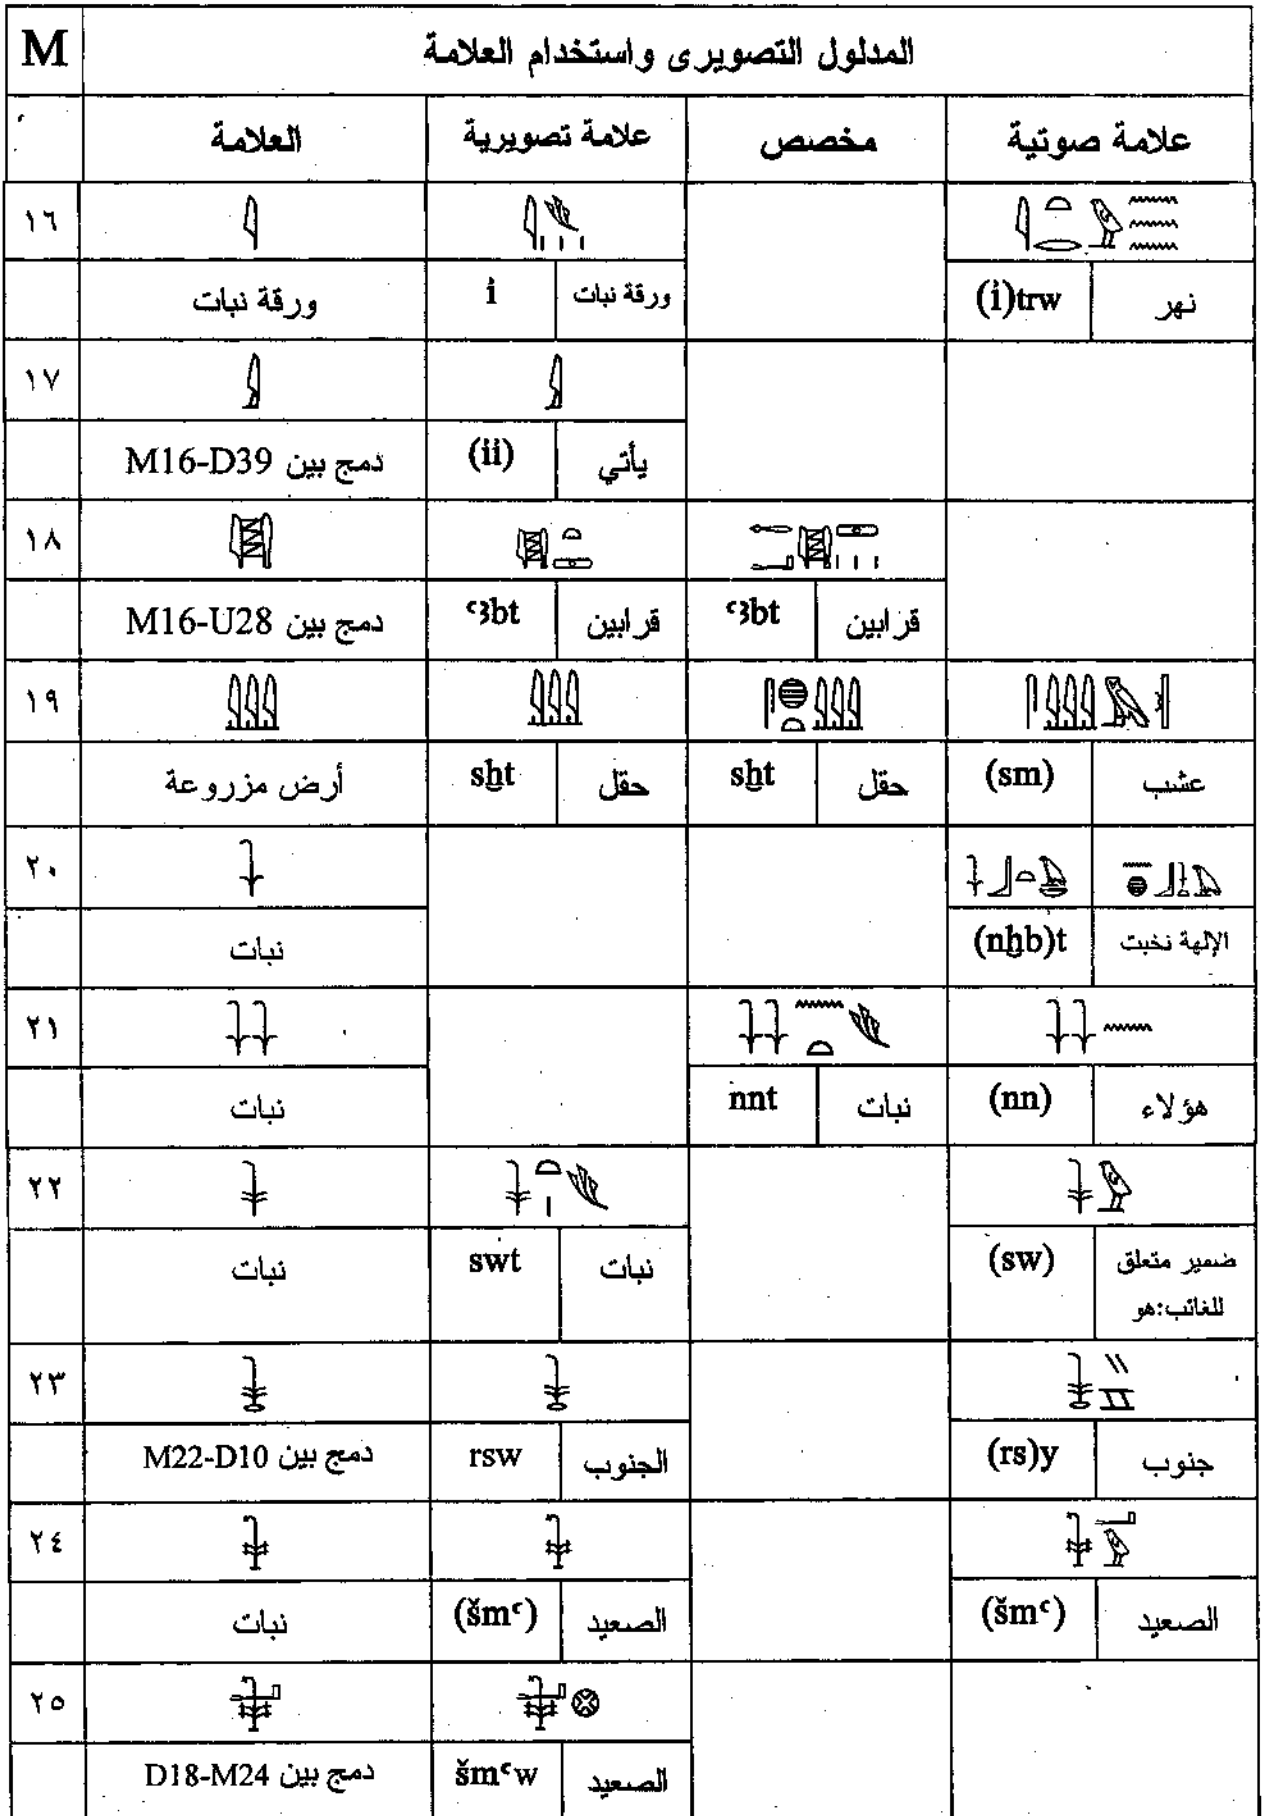 M المدلول التصويرى واستخدام العلامة
العلامة علامة تصويرية مخصص علامة صوتية
١٦ 𓇋 𓇋𓆰𓏥 𓇋𓏏𓂋𓅱𓈗
ورقة نبات i҆ ورقة نبات (i҆)trw نهر
١٧ 𓇍 𓇍
دمج بين M16-D39 (i҆i҆) يأتي
١٨
دمج بين M16-U28 ꜥꜣbt قرابين ꜥꜣbt قرابين
١٩ 𓇏 𓇏 𓋴𓐍𓏏𓇏 𓋴𓇏𓅓𓏛
أرض مزروعة sḫt حقل sḫt حقل (sm) عشب
٢٠ 𓇐
نبات (nḫb)t الإلهة نخبت
٢١ 𓇒 𓇒𓈖𓏏𓆰 𓇒𓈖
نبات nnt نبات (nn) هؤلاء
٢٢ 𓇓 𓇓𓏏𓏤𓆰 𓇓𓅱
نبات swt نبات (sw) ضمير متعلق
للغائب:هو
٢٣ 𓇔 𓇔 𓇔𓏭𓈇
دمج بين M22-D10 rsw الجنوب (rs)y جنوب
٢٤ 𓇗 𓇗 𓇗𓂝𓅱
نبات (šmꜥ) الصعيد (šmꜥ) الصعيد
٢٥ 𓇘 𓇘𓊖
دمج بين D18-M24 šmꜥw الصعيد